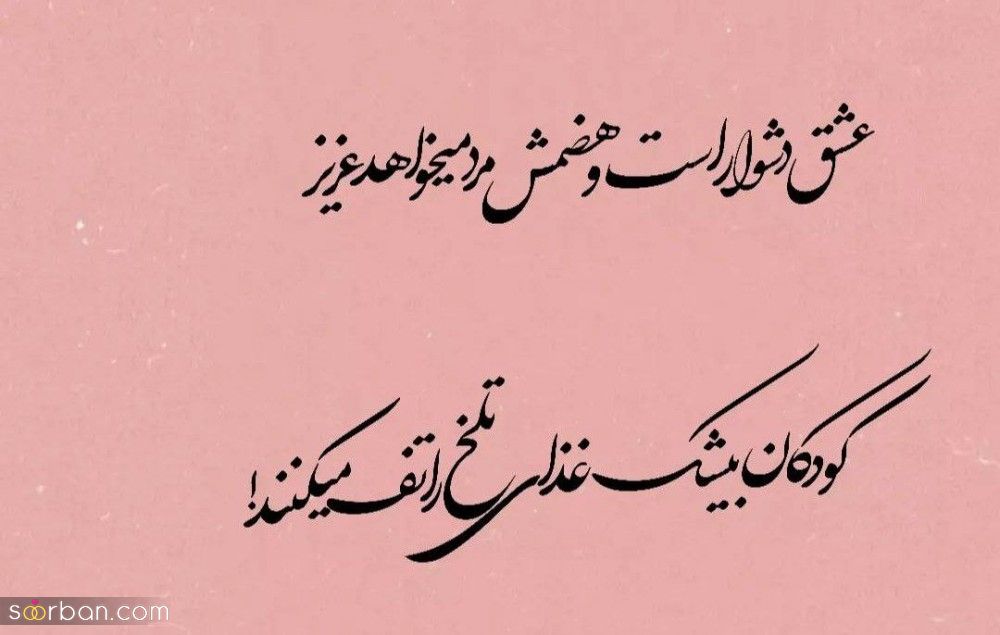 عشق دشوار است و هضمش مرد میخواهد عزیز
کودکان بیشک غذای تلخ را تف میکنند!
soorban.com